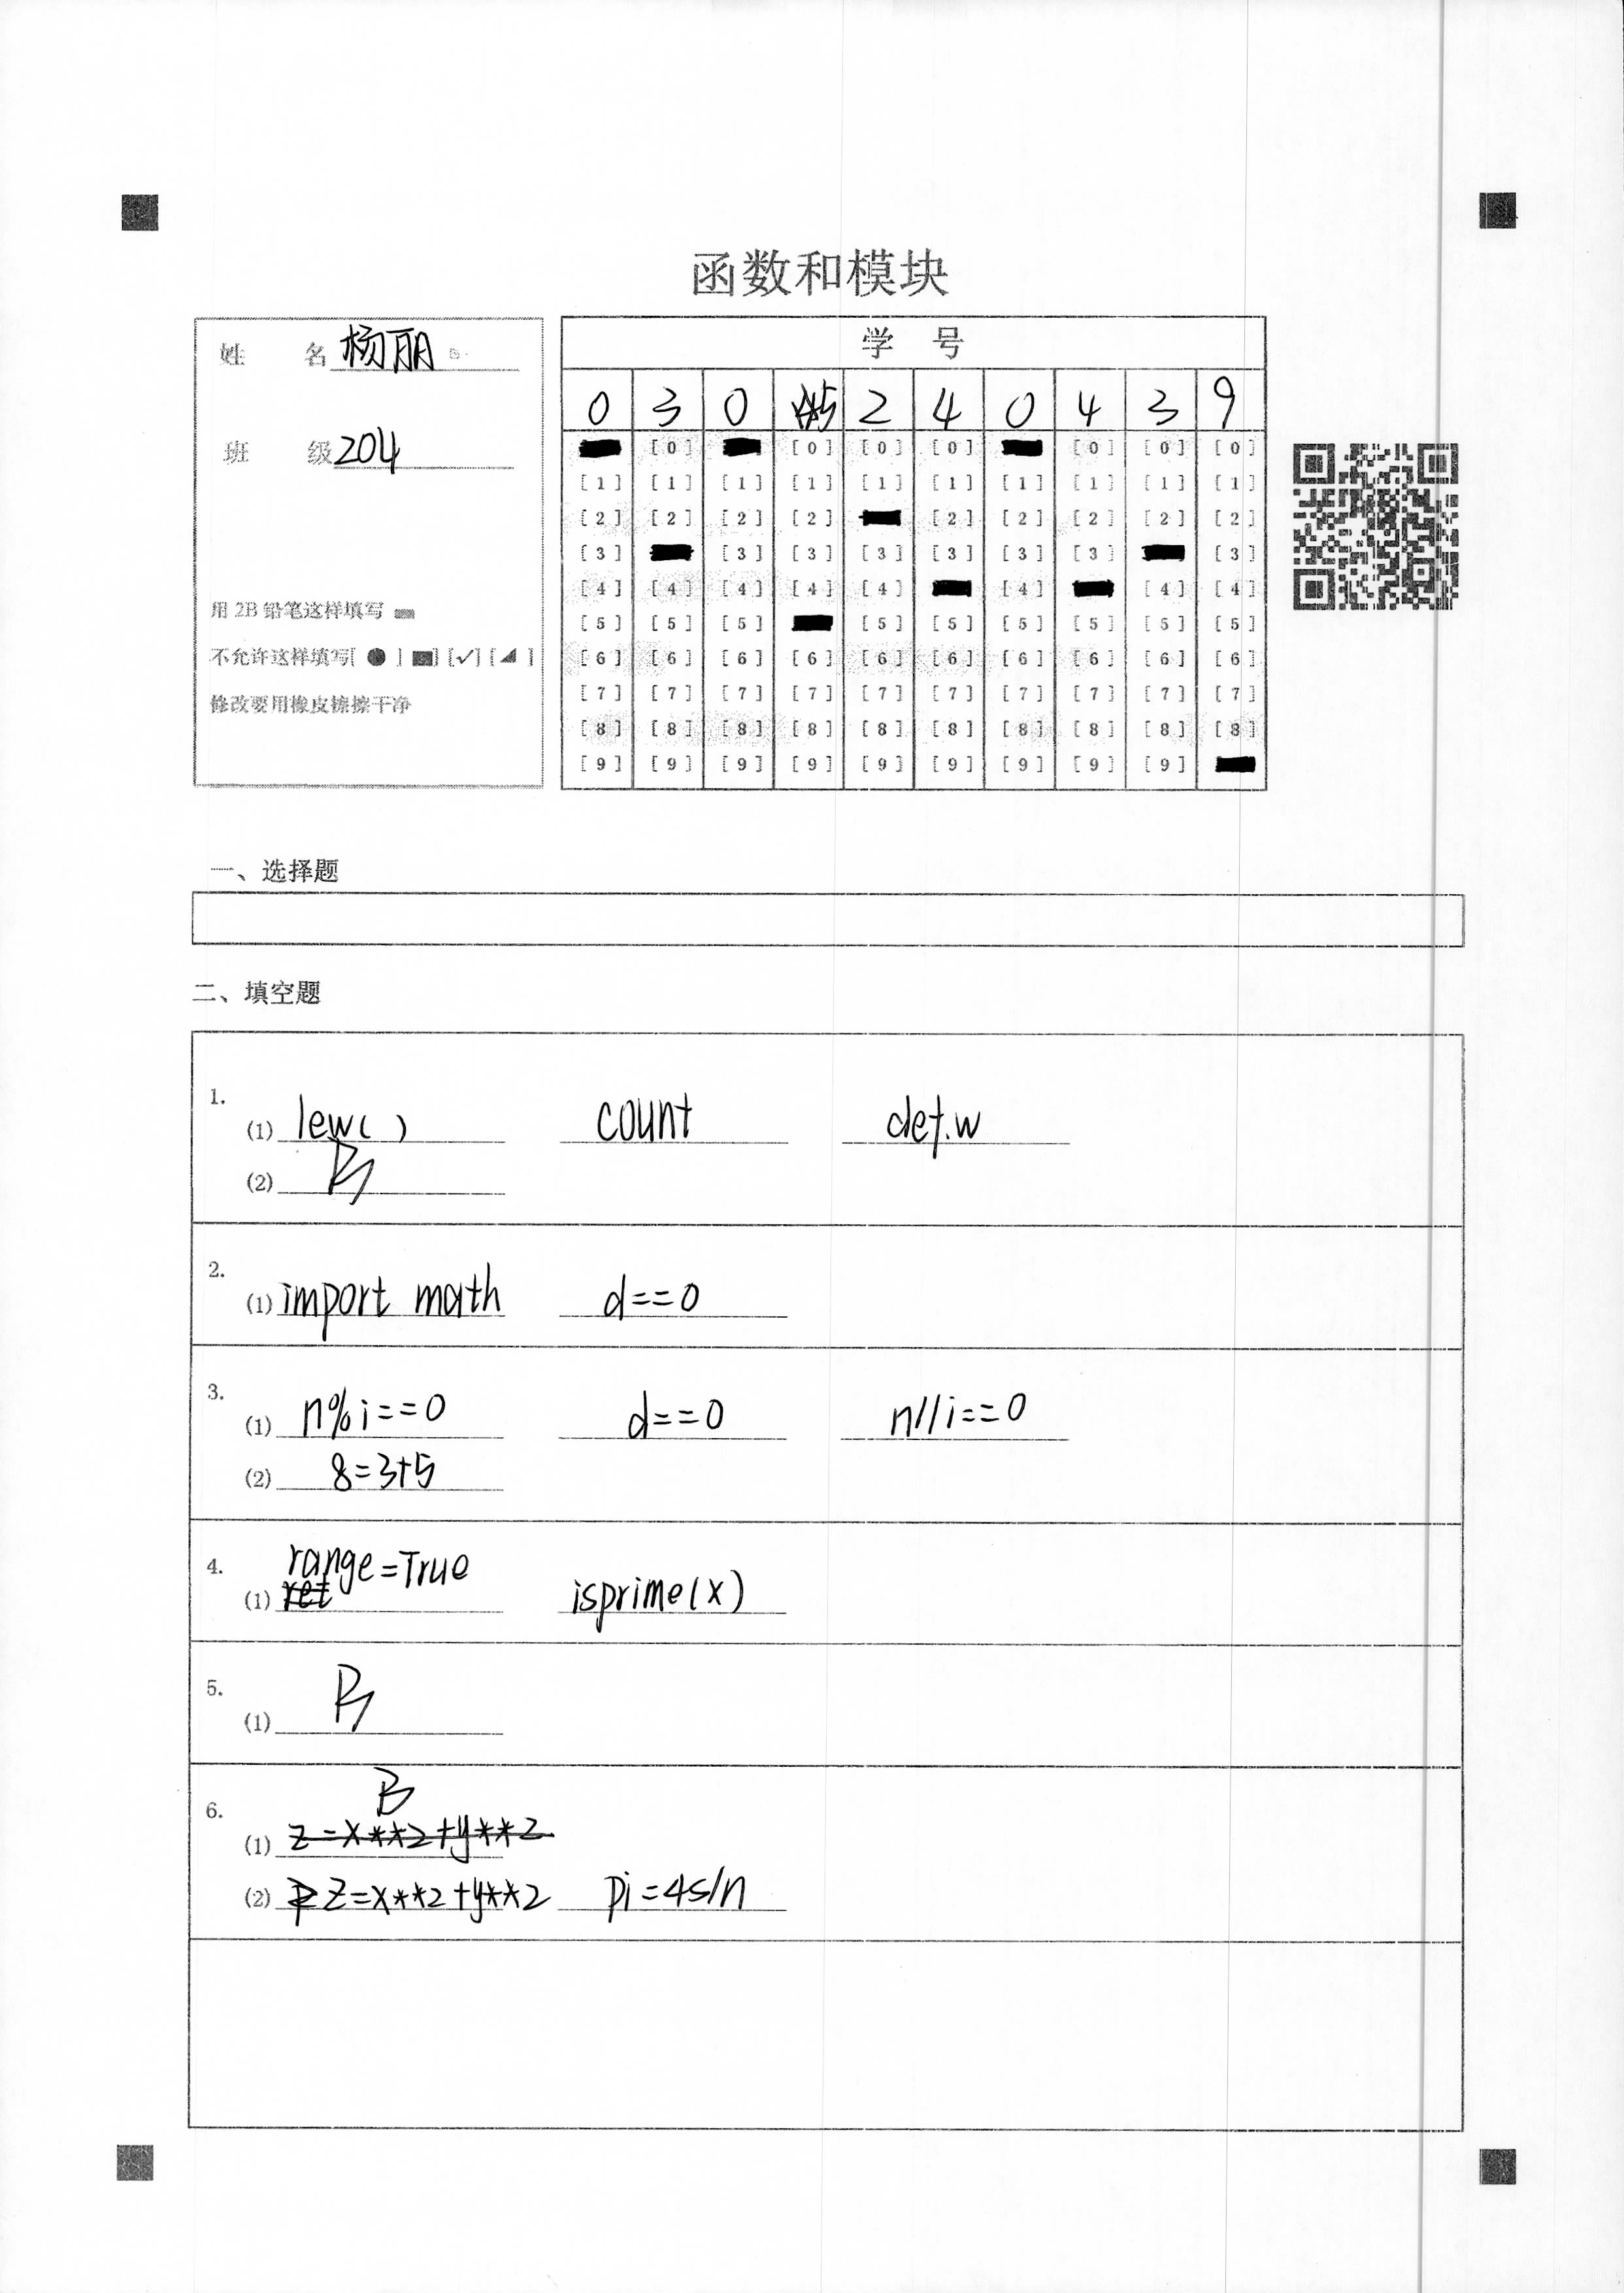 函数和模块
姓 名 杨丽
班 级 204
用 2B 铅笔这样填写
不允许这样填写[ ● ] [■] [✓] [◢ ]
修改要用橡皮擦擦干净
学 号
0 3 0 5 2 4 0 4 3 9
[0] [0] [0] [0] [0] [0] [0]
[1] [1] [1] [1] [1] [1] [1] [1] [1] [1]
[2] [2] [2] [2] [2] [2] [2] [2] [2]
[3] [3] [3] [3] [3] [3] [3] [3]
[4] [4] [4] [4] [4] [4] [4] [4]
[5] [5] [5] [5] [5] [5] [5] [5] [5]
[6] [6] [6] [6] [6] [6] [6] [6] [6] [6]
[7] [7] [7] [7] [7] [7] [7] [7] [7] [7]
[8] [8] [8] [8] [8] [8] [8] [8] [8] [8]
[9] [9] [9] [9] [9] [9] [9] [9] [9]
一、选择题
二、填空题
1.
(1) lew( ) count def.w
(2) B
2.
(1) import math d==0
3.
(1) n%i==0 d==0 n//i==0
(2) 8=3+5
4.
range=True
(1) ret isprime(x)
5.
(1) B
6.
B
(1) z=x**2+y**2
(2) z=x**2+y**2 pi=4s/n